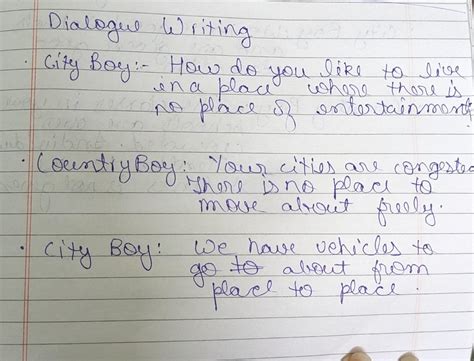 Dialogue Writing
• City Boy:- How do you like to live
in a place where there is
no place of entertainment
• Country Boy: Your cities are congested
There is no place to
move about freely.
• City Boy: We have vehicles to
go to about from
place to place.